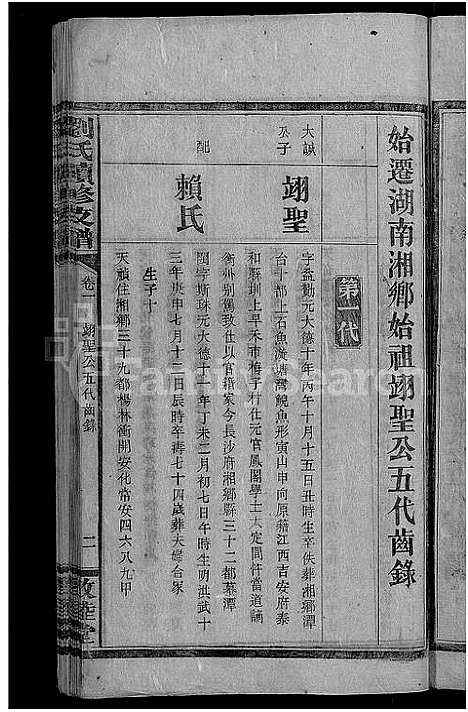 始遷湖南湘鄉始祖翊聖公五代齒錄
第一代
大誠公子
翊聖
字益勸元大德十年丙午十月十五日丑時生卒佚葬湘鄉潭
台十都上石魚漩塘灣鯢魚形寅山申向原藉江西吉安府泰
和縣圳上早禾市梅子村仕元官鳳閣學士大定間忤當道謫
衡州別駕致仕以官籍家今長沙府湘鄉縣三十二都墓潭
配
賴氏
閨字斯珠元大德十一年丁未二月初七日午時生明洪武十
三年庚申七月十二日辰時卒壽七十四歲葬夫塋合冢
生子十
天禎住湘鄉三十九都楊林衝開安化常安四六八九甲
劉氏續修支譜
卷一
翊聖公五代齒錄
二
敦睦堂
FamilySearch